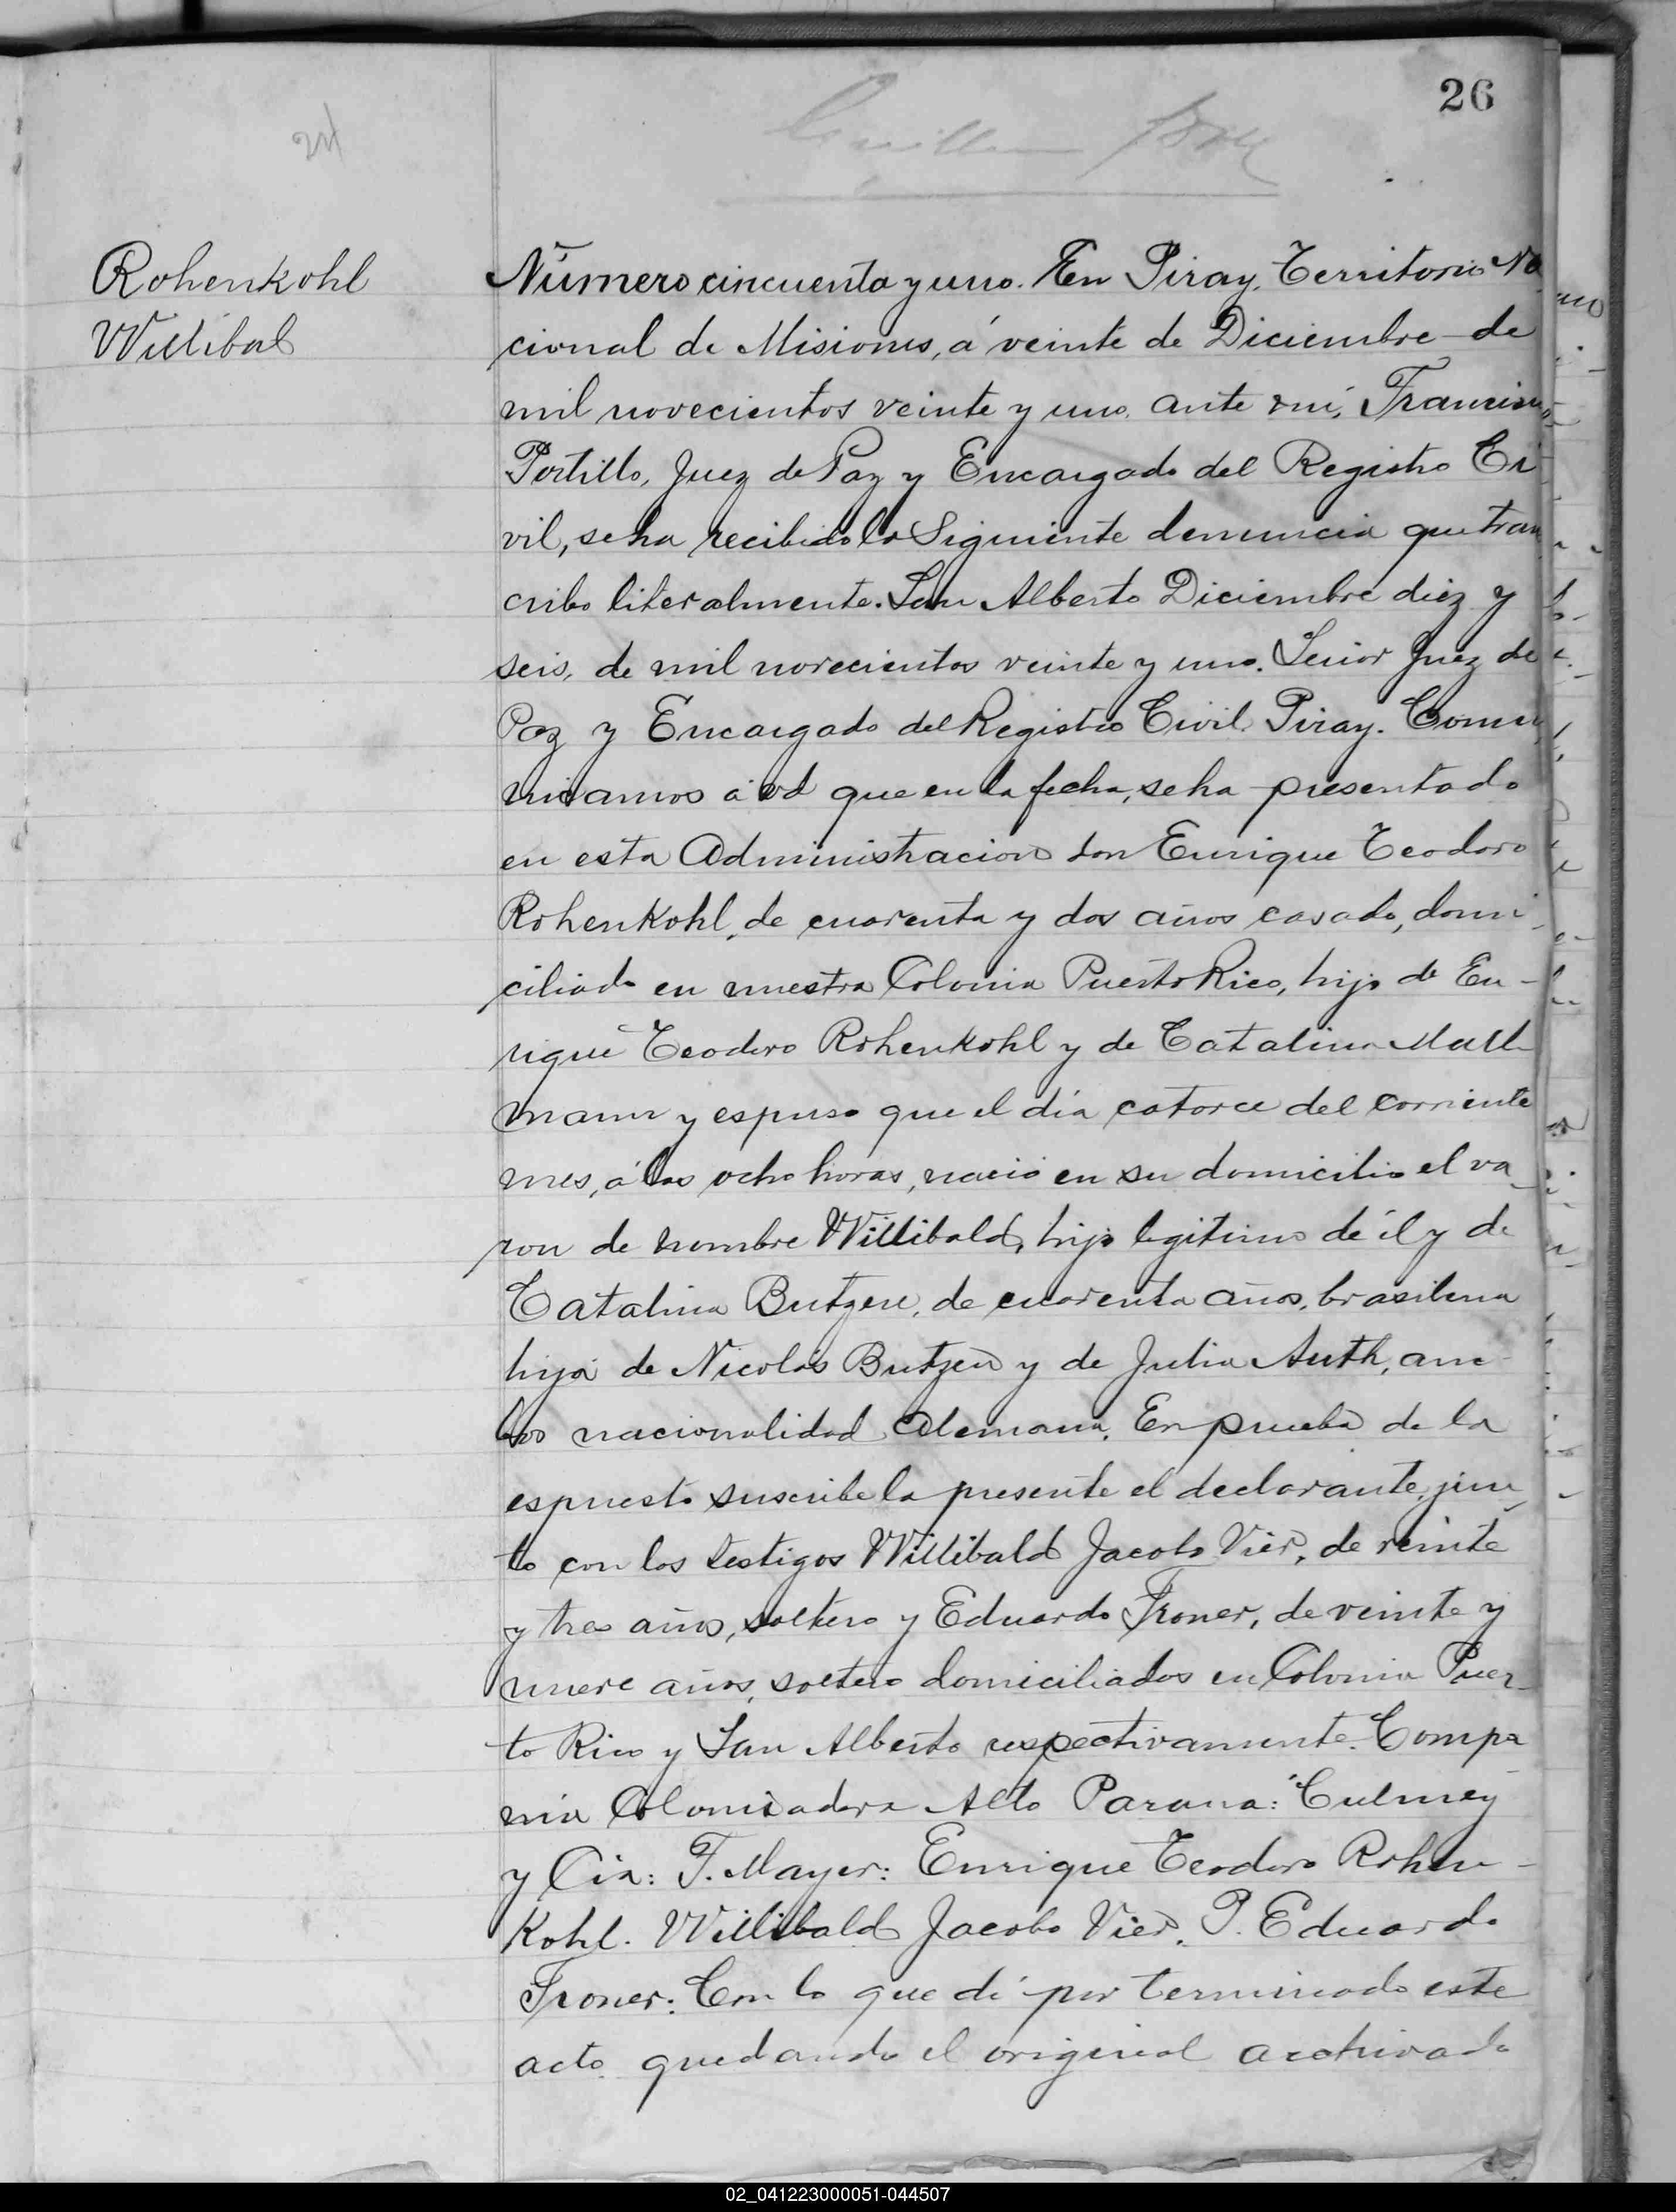 26
Rohenkohl
Willibal
Número cincuenta y uno. En Piray, Territorio Na
cional de Misiones, á veinte de Diciembre de
mil novecientos veinte y uno, ante mí, Francisco
Portillo, Juez de Paz y Encargado del Registro Ci
vil, se ha recibido la Siguiente denuncia que trans
cribo literalmente. San Alberto Diciembre diez y
seis, de mil novecientos veinte y uno. Senior Juez de
Paz y Encargado del Registro Civil Piray. Comu
nicamos á vd que en la fecha, se ha presentado
en esta Administracion don Enrique Teodoro
Rohenkohl, de cuarenta y dos años casado, domi
ciliado en nuestra Colonia Puerto Rico, hijo de En-
rique Teodoro Rohenkohl y de Catalina
mann y espuso que el día catorce del corriente
mes, á las ocho horas, nació en su domicilio el va
ron de nombre Willibald, hijo legitimo de él y de
Catalina Butzen, de cuarenta años, brasilena
hija de Nicolás Butzen y de Julia Auth, am
bos nacionalidad Alemana. En prueba de lo
espuesto suscribe la presente el declarante, jun
to con los testigos Willibald Jacobo Vier, de veinte
y tres años, soltero y Eduardo Froner, de veinte y
nueve años, soltero domiciliados en Colonia Puer
to Rico y San Alberto respectivamente. Compa
nía Colonizadora Alto Parana: Culmey
y Cia: F. Mayer: Enrique Teodoro Rohen-
kohl. Willibald Jacobo Vier. P. Eduardo
Froner: Con lo que dí por terminado este
acto quedando el original archivado
02_041223000051-044507